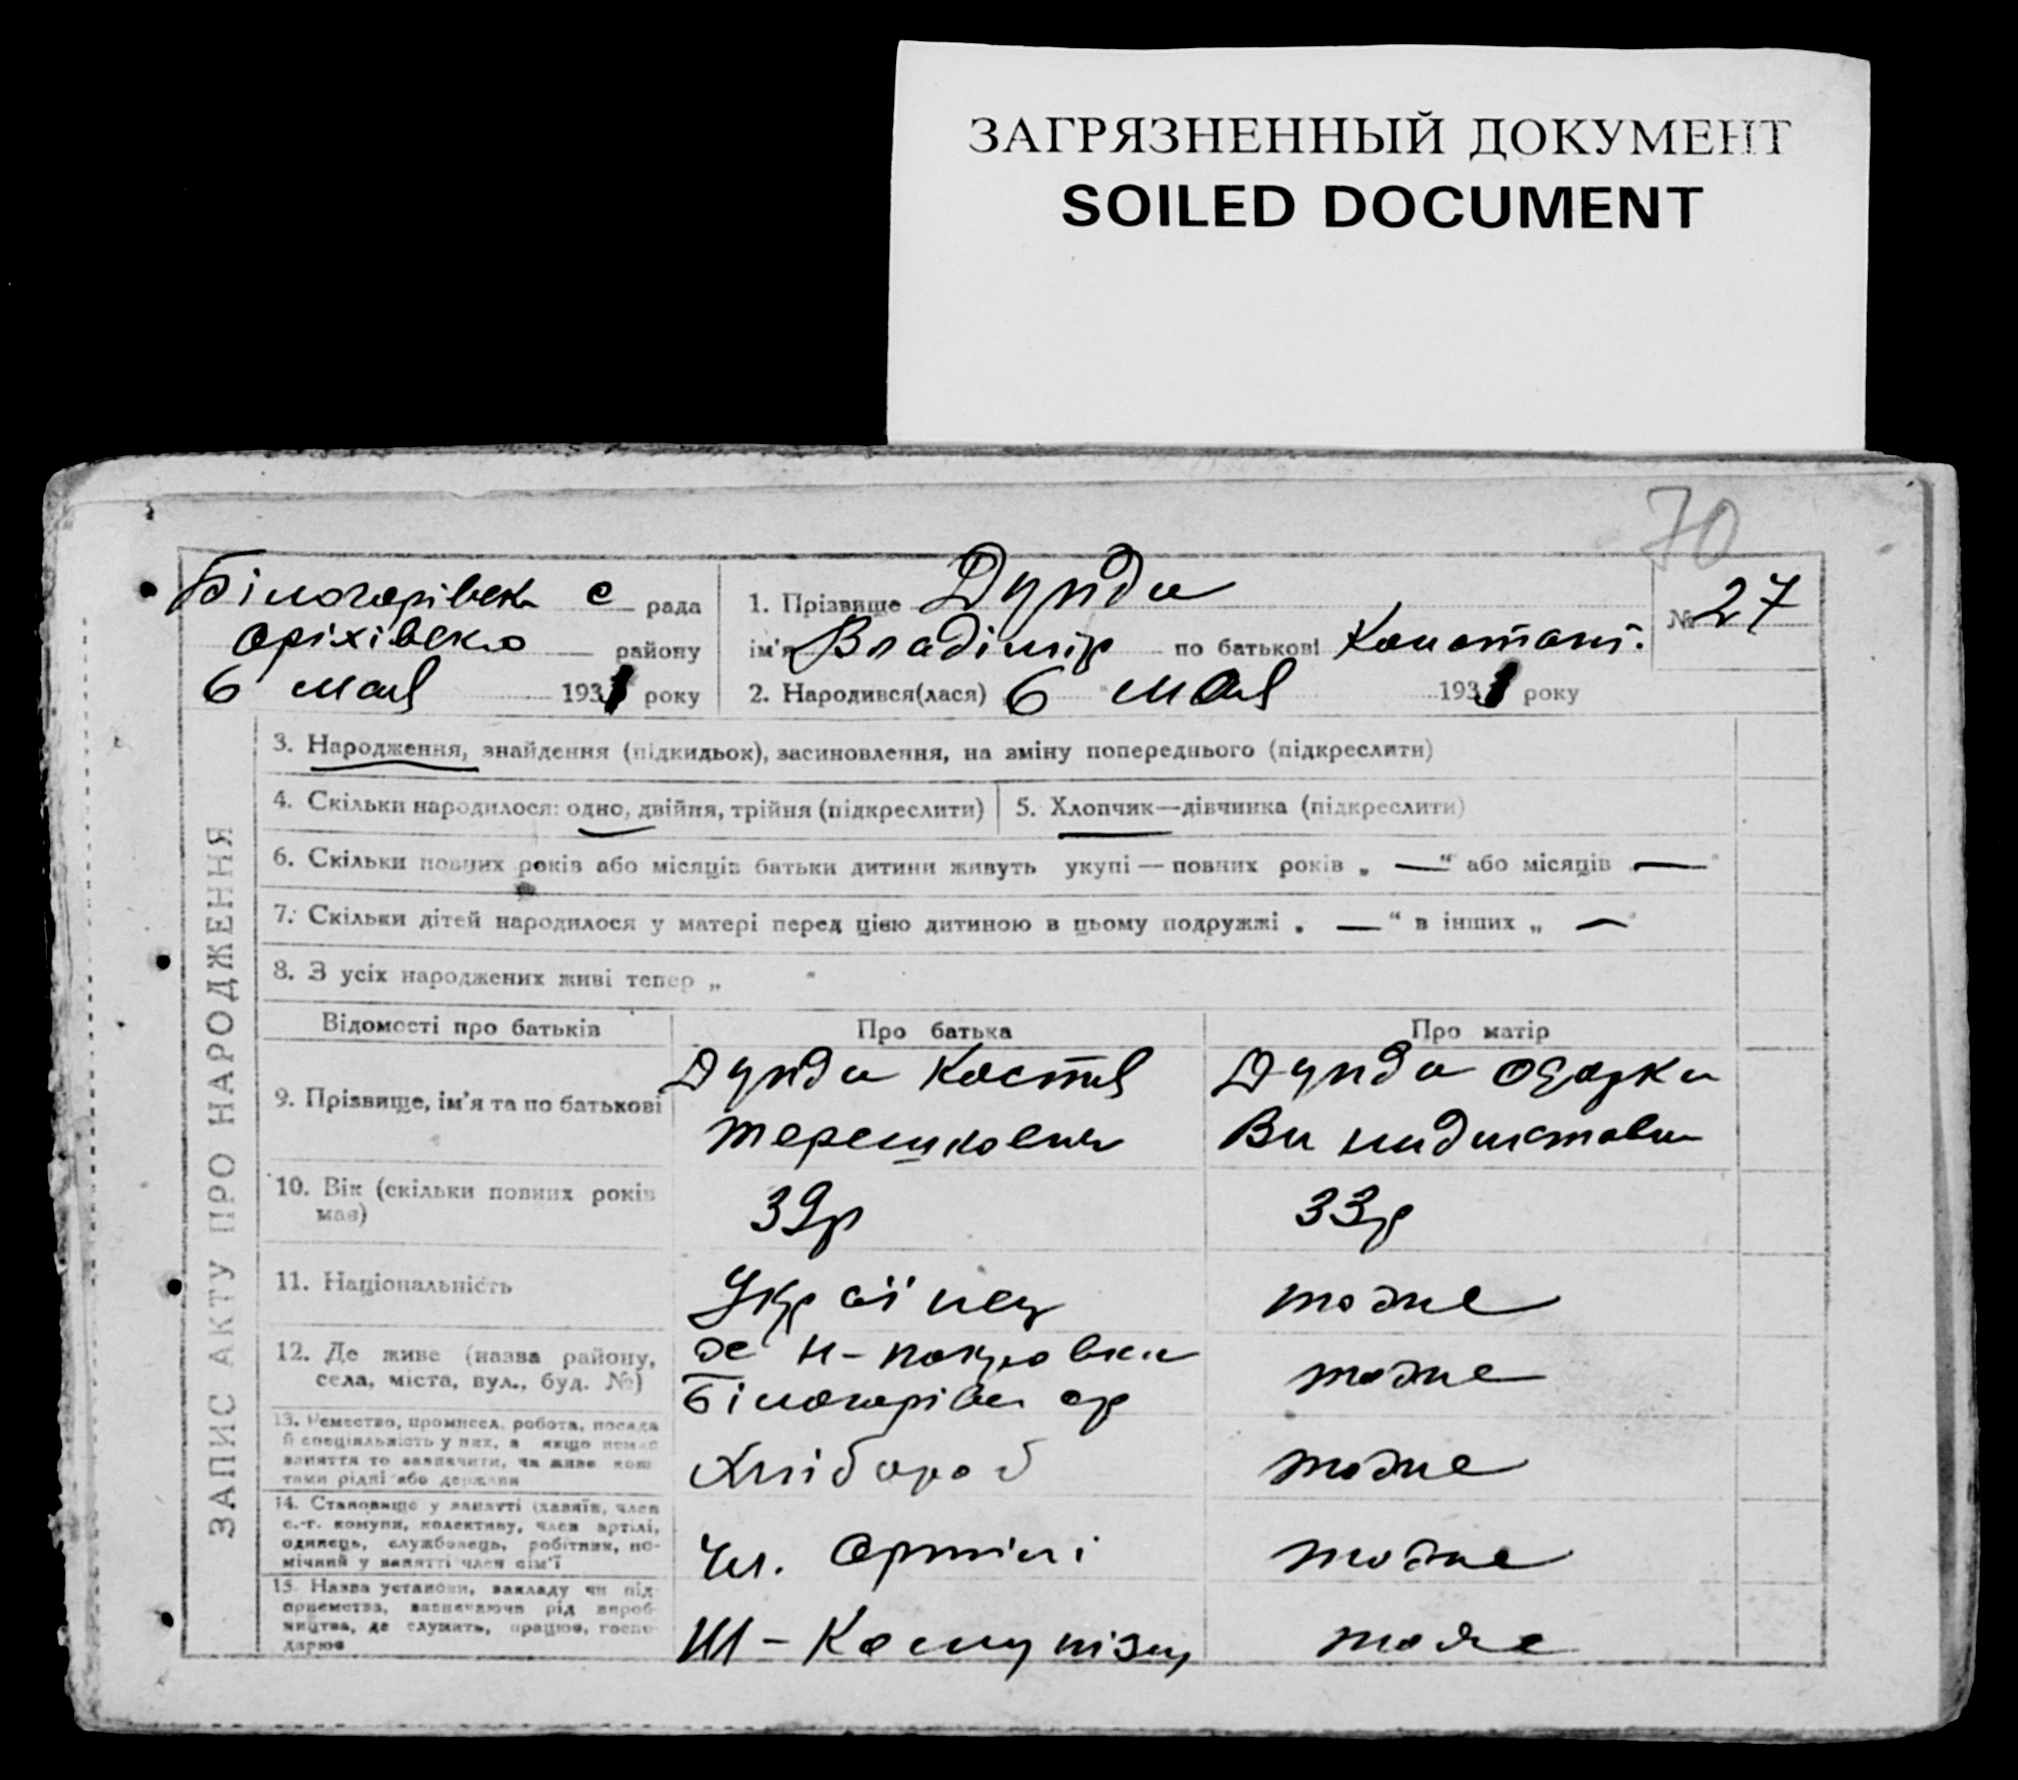 ЗАГРЯЗНЕННЫЙ ДОКУМЕНТ
SOILED DOCUMENT
70
Білогорівськ с рада
Оріхівсько району
6 мая 1931 року
1. Прізвище Дунда
ім'я Владімір по батькові Констант.
2. Народився(лася) 6 мая 1931 року
№ 27
ЗАПИС АКТУ ПРО НАРОДЖЕННЯ
3. Народження, знайдення (підкидьок), засиновлення, на зміну попереднього (підкреслити)
4. Скільки народилося: одно, двійня, трійня (підкреслити)
5. Хлопчик—дівчинка (підкреслити)
6. Скільки повних років або місяців батьки дитини живуть укупі — повних років „ — “ або місяців —
7. Скільки дітей народилося у матері перед цією дитиною в цьому подружжі „ — “ в інших „ — “
8. З усіх народжених живі тепер „ “
Відомості про батьків
Про батька
Про матір
9. Прізвище, ім'я та по батькові
Дунда Костя
Терешкович
Дунда Одарка
10. Вік (скільки повних років
має)
39р
33р
11. Національність
Українец
тоже
12. Де живе (назва району,
села, міста, вул., буд. №)
Н-покровка
Білогорівс ср
тоже
13. Ремество, промисел, робота, посада
й спеціяльність у них, а якщо немає
заняття то зазначити, чи живе кош
тами рідні або держави
Хлібороб
тоже
14. Становище у занятті (хазяїн, член
с.-г. комуни, колективу, член артілі,
одинець, службовець, робітник, по-
мічний у занятті член сім'ї
Чл. Артілі
тоже
15. Назва установи, закладу чи під-
приємства, зазначаючи рід вироб-
ництва, де служить, працює, госпо-
дарює
Ш-Комунізму
тоже